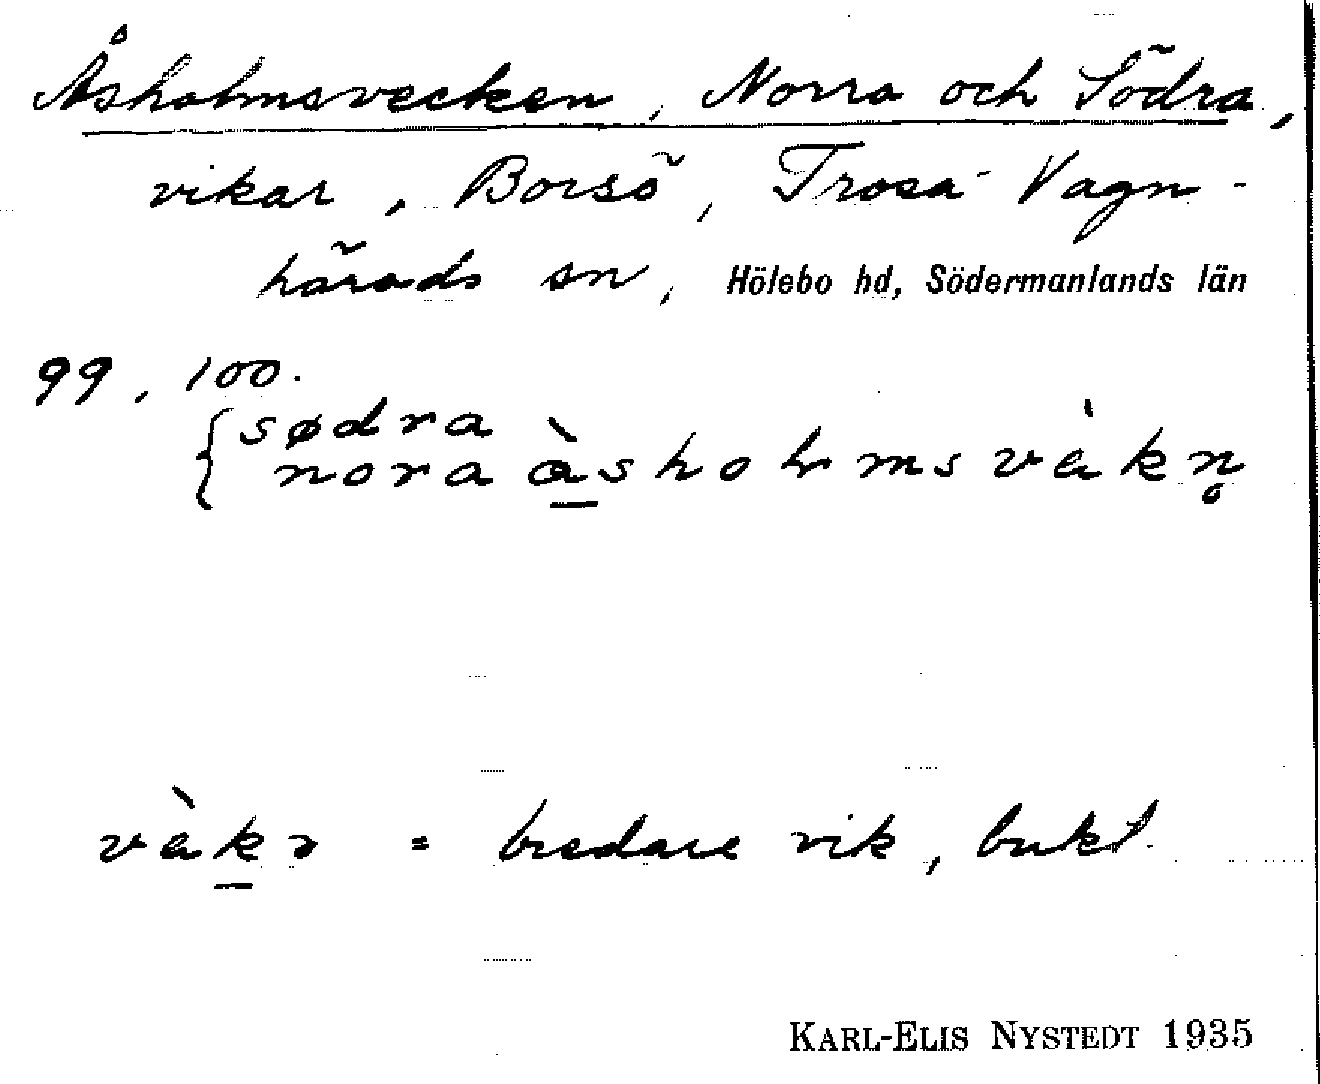 Åsholmsvecken, Norra och Södra,
vikar, Borsö, Trosa-Vagn-
härads sn, Hölebo hd, Södermanlands län
99, 100.
{ södra
nora åsholmsvàkn̥
vàkə = bredare vik, bukt
KARL-ELIS NYSTEDT 1935